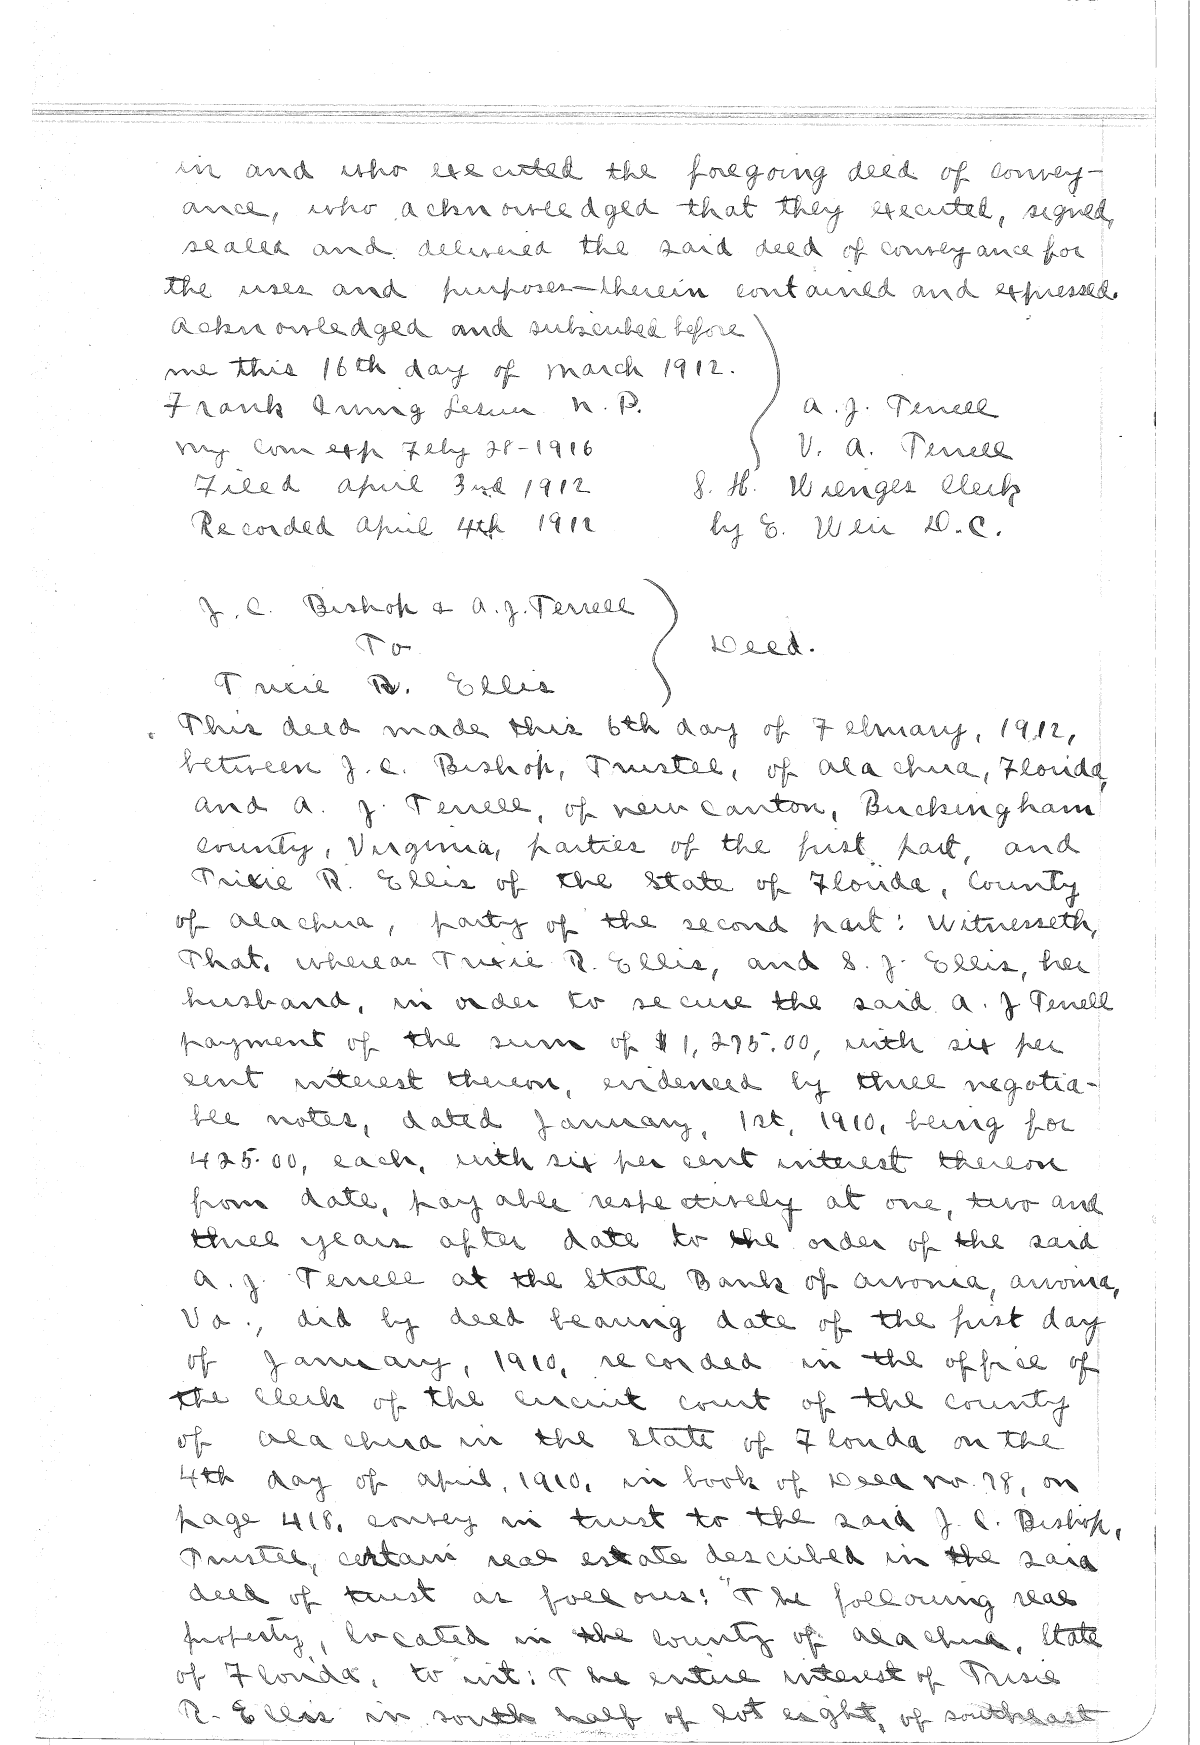 in and who executed the foregoing deed of convey-
ance, who acknowledged that they executed, signed,
sealed and delivered the said deed of conveyance for
the uses and purposes—therein contained and expressed.
Acknowledged and subscribed before
me this 16th day of March 1912.
Frank Irving Lesuer N. P.
A. J. Terrell
my Com exp Feby 28-1916
V. A. Terrell
Filed April 3rd 1912
S. H. Wienges Clerk
Recorded April 4th 1912
by E. Weir D.C.
J. C. Bishop & A. J. Terrell
To
Deed.
Trixie R. Ellis
This deed made this 6th day of February, 1912,
between J. C. Bishop, Trustee, of Alachua, Florida,
and A. J. Terrell, of New Canton, Buckingham
County, Virginia, parties of the first part, and
Trixie R. Ellis of the State of Florida, County
of Alachua, party of the second part: Witnesseth,
That, whereas Trixie R. Ellis, and S. J. Ellis, her
husband, in order to secure the said A. J Terrell
payment of the sum of $1,275.00, with six per
cent interest thereon, evidenced by three negotia-
ble notes, dated January, 1st, 1910, being for
425.00, each, with six per cent interest thereon
from date, payable respectively at one, two and
three years after date to the order of the said
A. J. Terrell at the State Bank of Arvonia, Arvonia,
Va., did by deed bearing date of the first day
of January, 1910, recorded in the office of
the Clerk of the circuit court of the county
of Alachua in the State of Florida on the
4th day of April, 1910, in book of Deed No. 78, on
page 418, convey in trust to the said J. C. Bishop,
Trustee, certain real estate described in the said
deed of trust as follows: "The following real
property, located in the County of Alachua, State
of Florida, to wit: The entire interest of Trixie
R. Ellis in south half of lot eight, of southeast